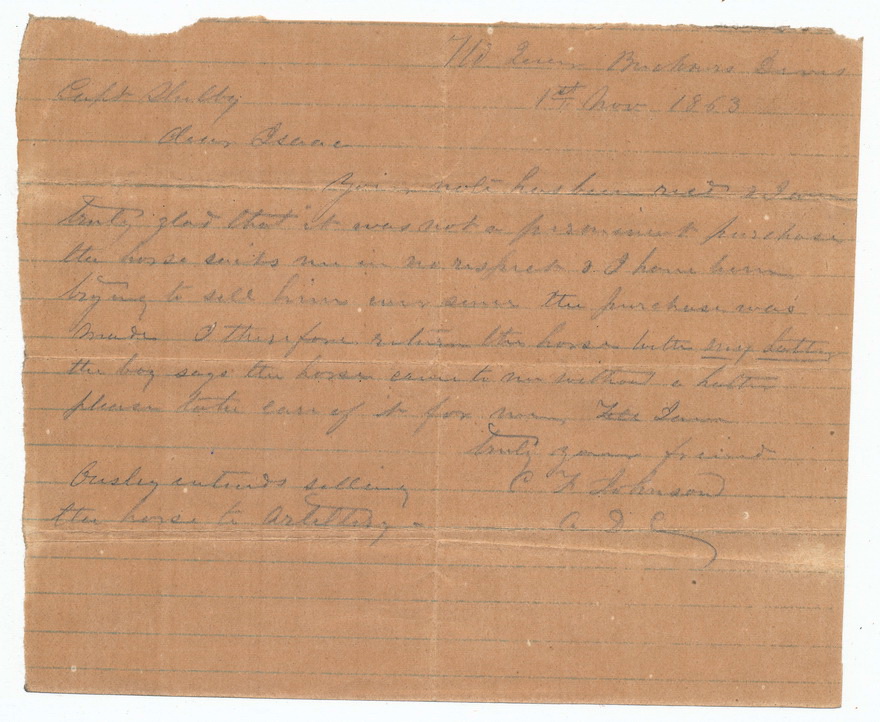 Hd Qurs Buckners Divis
1st Nov 1863
Capt Shelby
Dear Isaac
Your note has been recd & I am
truly glad that it was not a perminent purchase
the horse suits me in no respect & I have been
trying to sell him ever since the purchase was
made I therefore return the horse with my halter
the boy says the horse came to me without a halter
please take care of it for me
truly your friend
C F Johnson
A D C
Ousley intends selling
the horse to Artillery